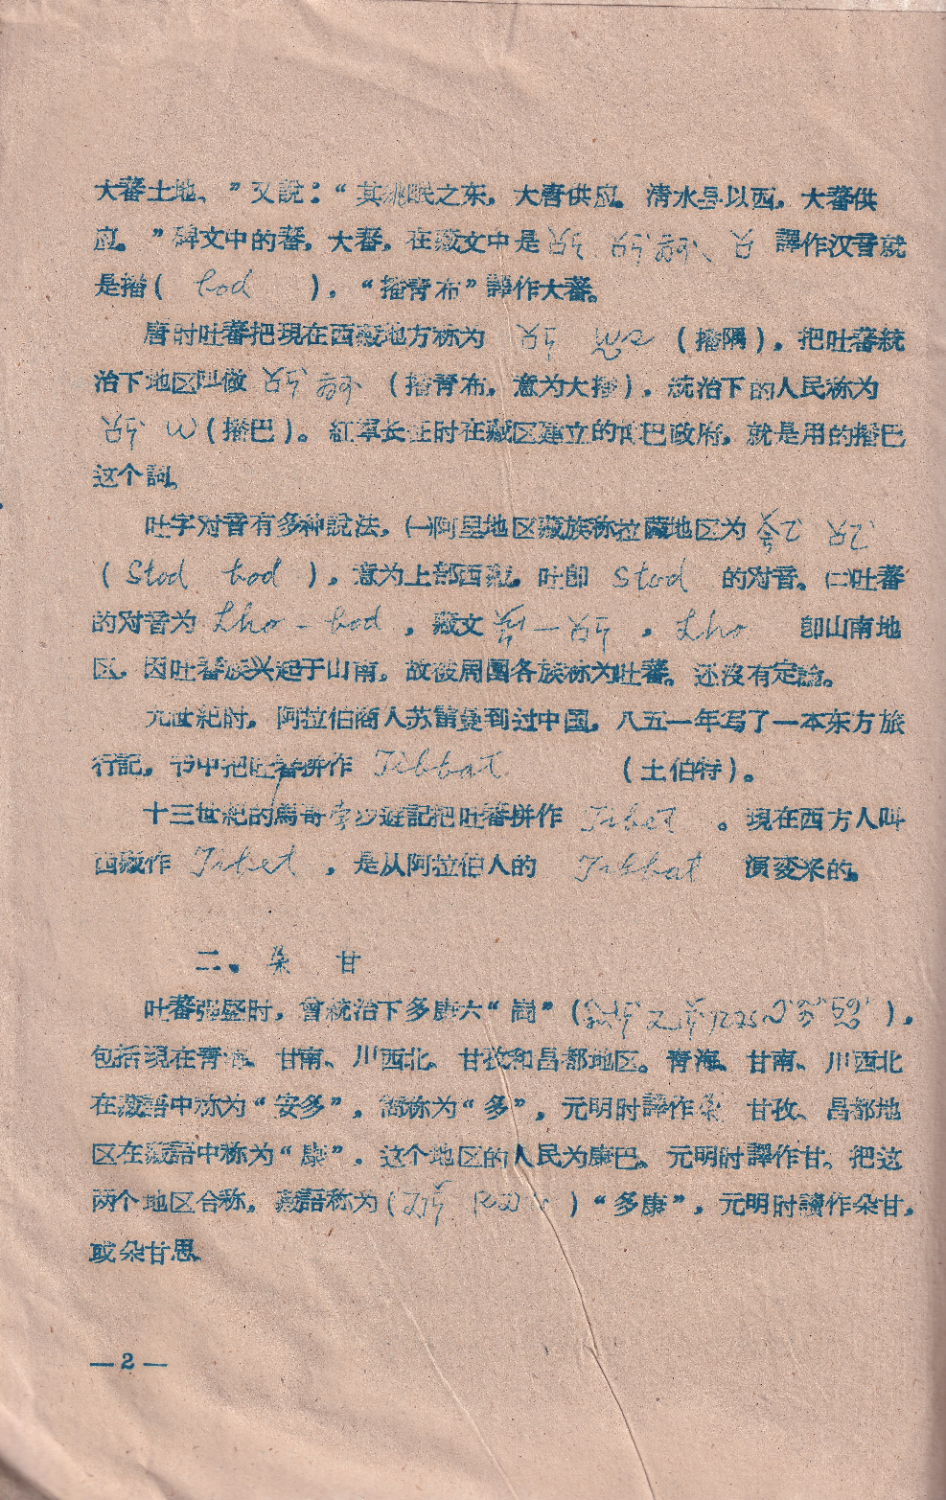 大蕃土地、”又說：“其洮岷之东，大唐供应。清水县以西，大蕃供
应。”碑文中的蕃，大蕃，在藏文中是 བོད བོད་ཆེན་པོ 譯作汉音就
是播( bod )，“播青布”譯作大蕃。
唐时吐蕃把現在西藏地方称为 བོད （播隅），把吐蕃統
治下地区叫做 བོད་ཆེན（播青布，意为大播），統治下的人民称为
བོད་པ（播巴）。紅軍长征时在藏区建立的博巴政府，就是用的播巴
这个詞。
吐字对音有多种說法，㈠阿里地区藏族称拉薩地区为
( Stod bod )，意为上部西藏。吐即 Stod 的对音。㈡吐蕃
的对音为 Lho-bod，藏文 ，Lho 即山南地
区，因吐蕃族兴起于山南，故被周围各族称为吐蕃。还沒有定論。
九世紀时，阿拉伯商人苏萊曼到过中国，八五一年写了一本东方旅
行記，书中把吐蕃拼作 Tibbat （土伯特）。
十三世紀的馬哥孛罗遊記把吐蕃拼作 Tibet 。現在西方人叫
西藏作 Tibet ，是从阿拉伯人的 Tibbat 演变来的。
二、朵 甘
吐蕃强盛时，曾統治下多康六“崗”（ ），
包括現在青海、甘南、川西北、甘孜和昌都地区。青海、甘南、川西北
在藏語中称为“安多”，簡称为“多”，元明时譯作朵 甘孜、昌都地
区在藏語中称为“康”，这个地区的人民为康巴。元明时譯作甘。把这
两个地区合称，藏語称为( )“多康”，元明时讀作朵甘，
或朵甘思
—2—